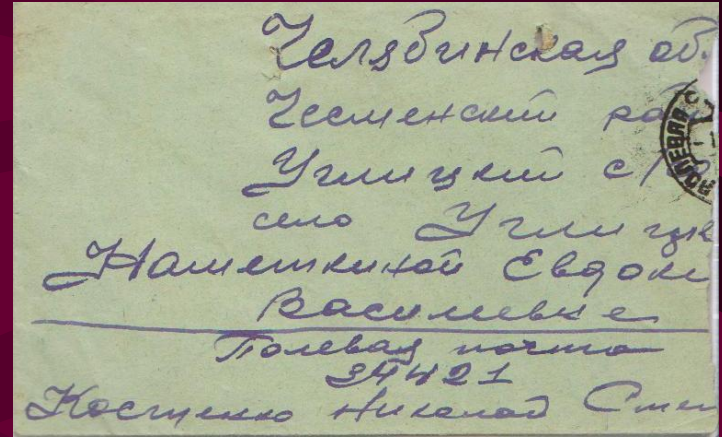 Челябинская об.
Чесменский рай
Углицкий с/
село Углицк
Евдоки
Василевне
Полевая почта
Костенко Николай Степ
ПОЛЕВАЯ